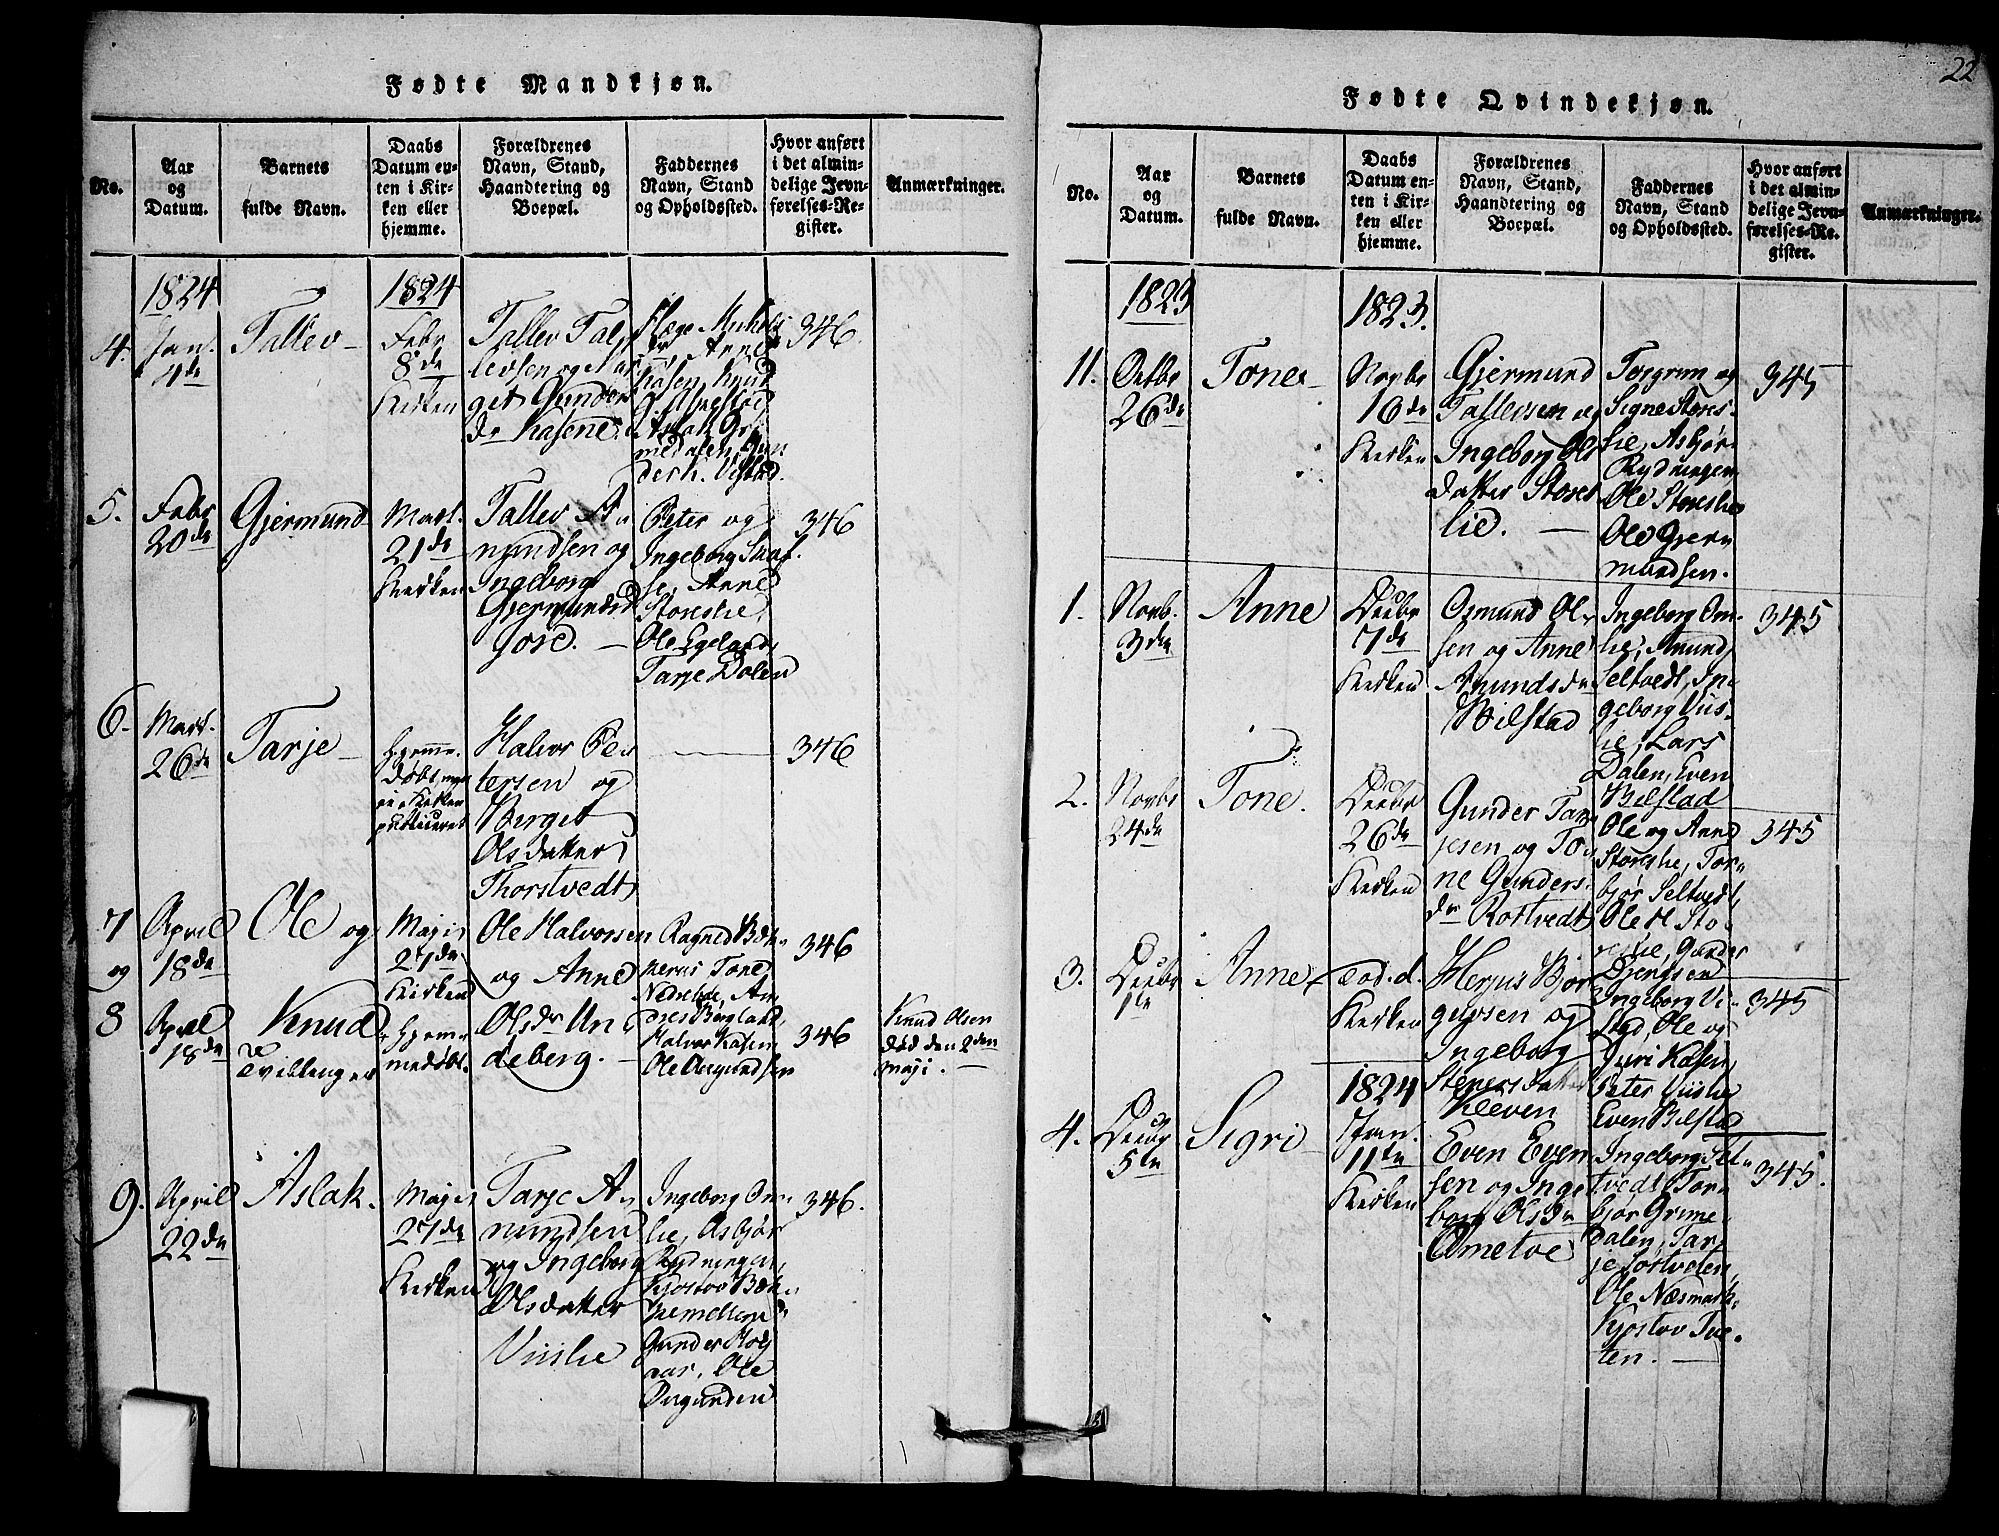 22
Fødte Mandkjøn.
No.
Aar
og
Datum.
Barnets
fulde Navn.
Daabs
Datum en-
ten i Kir-
ken eller
hjemme.
Forældrenes
Navn, Stand,
Haandtering og
Boepæl.
Faddernes
Navn, Stand
og Opholdssted.
Hvor anført
i det almin-
delige Jevn-
førelses-Re-
gister.
Anmærkninger.
1824
1824
4.
Jan.
4de
Tallev
Febr
8de
Kirken
Tallev Tal
levsen og
git Gunders
dr Kasene
Anne
Kasen, Knud
Aslak Gri
medalen, Gun
der h. Vistad.
346.
5.
Febr
20de
Gjermund
Mart.
21de
Kirken
Tallev A
nundsen og
Ingeborg
Gjermundsd
Peter og
Ingeborg
Anne
Storelie,
Ole Egeland,
Tarje Dolen
346
6.
Mart.
26de
Tarje
hjemme-
døbt, men
i Kirken
publiceret
Halvor Pe
tersen og
Berget
Olsdatter
Thorstvedt
346
7
og
April
18de
Ole og
Maji
27de
Kirken
Ole Halvorsen
og Anne
Olsdr Un
deberg.
Ragned Bek-
nerus Tone
Nedrebøe, An
dres Bergland,
Halvor Kasen
Ole Aagundsen
346
8
April
18de
Knud
Tvillinger
hjem-
medøbt.
346
Knud Olsen
død den 2den
maji.
9.
April
22de
Aslak.
Maji
27de
Kirken
Tarje A
nundsen
og Ingeborg
Olsdatter
Viislie
Ingeborg Om
lie, Asbjør
Rydningen,
Kjøstov Bek
kemellem
Gunder
aas, Ole
346.
Fødte Qvindekjøn.
No.
Aar
og
Datum.
Barnets
fulde Navn.
Daabs
Datum en-
ten i Kir-
ken eller
hjemme.
Forældrenes
Navn, Stand,
Haandtering og
Boepæl.
Faddernes
Navn, Stand
og Opholdssted.
Hvor anført
i det almin-
delige Jevn-
førelses-Re-
gister.
Anmærkninger.
1823
1823.
11.
Octbr
26de
Tone
Novbr
16de
Kirken
Gjermund
Tallevsen og
Ingeborg Ols
datter Store
lie.
Torgrim og
Signe Stores-
lie, Asbjør
Rydningen
Ole Storelie
Ole Gjer
mundsen.
345
1.
Novb.
3die
Anne
Decbr
7de
Kirken
Osmund Ol
sen og Anne
Anundsdr
Bilstad
Ingeborg Om-
lie, Anund
Seltvedt, In
geborg Viis-
lie, Lars
Dalen, Even
Bilstad
345
2.
Novbr
24de
Tone.
Decbr
26de
Kirken
Gunder Tar
jesen og To
ne Gunders
dr Rostvedt
Ole og Anne
Storelie, Tor
bjør Seltvedt,
Ole H. Sto
relie, Gunder
345
3.
Decbr
1te
Anne
eod. d.
Kirken
Herjus Bjør
gusen og
Ingeborg
Stenersdatter
Kleven
Ingeborg Vi
stad, Ole og
Guri Kasen,
Peter Viislie
Even Bilstad
345
1824
4.
Decbr
5te
Sigri
Jan.
11te
Kirken
Even Even
sen og Inge
borg Olsdr
Ometve
Ingeborg Selt
vedt, Tor
bjør Grime
dalen, Tar
je Sostveten,
Ole Næsmark,
Kjøstov Tve-
ten.
345.